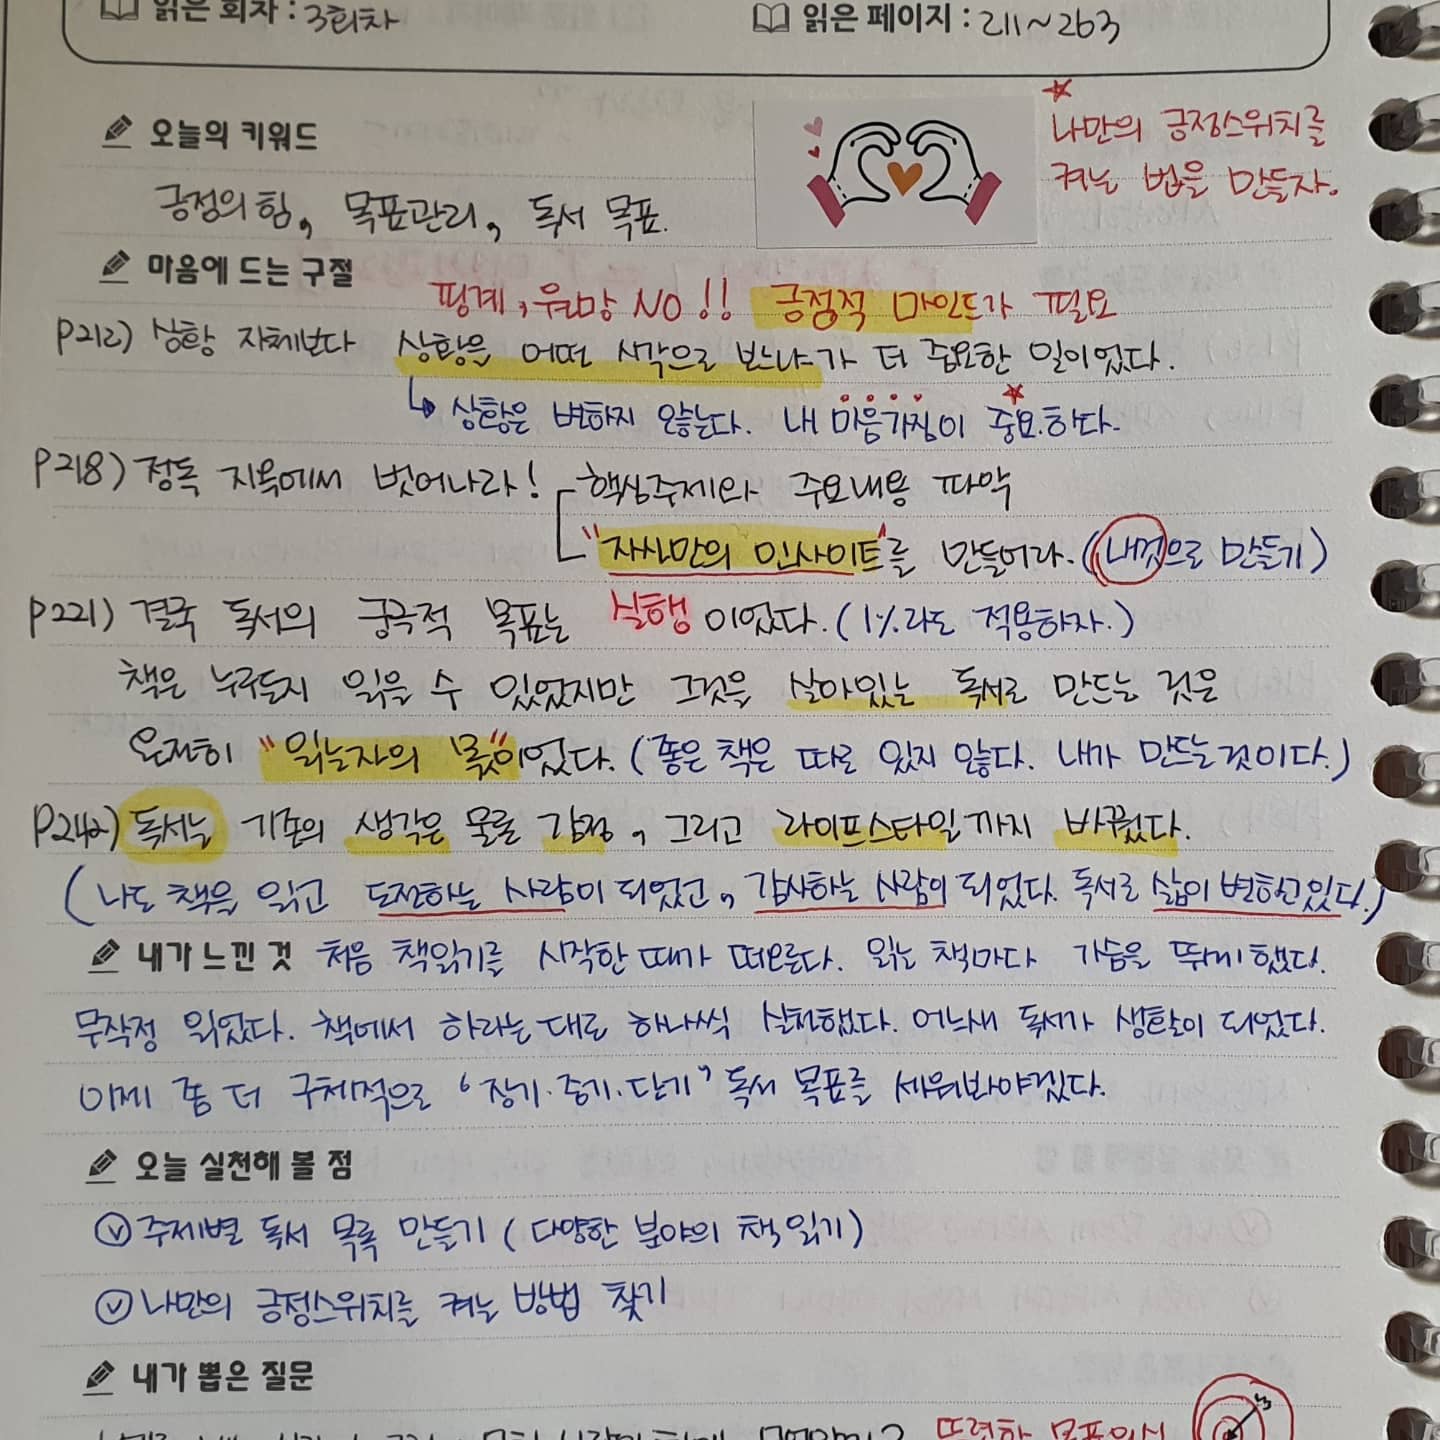 읽은 회차 : 3회차
읽은 페이지 : 211~263
오늘의 키워드
★
나만의 긍정스위치를
켜는 법을 만들자.
긍정의 힘, 목표관리, 독서 목표.
마음에 드는 구절
핑계, 원망 NO!! 긍정적 마인드가 필요
P212) 상황 자체보다 상황을 어떤 시각으로 보느냐가 더 중요한 일이었다.
↳ 상황은 변하지 않는다. 내 마음가짐이 중요.하다.
P218) 정독 지옥에서 벗어나라! 핵심주제와 주요내용 파악
"자신만의 인사이트"를 만들어라. (내것으로 만들기)
P221) 결국 독서의 궁극적 목표는 실행이었다. (1%라도 적용하자.)
책은 누구든지 읽을 수 있었지만 그것을 살아있는 독서로 만드는 것은
온전히 "읽는자의 몫"이었다. (좋은 책은 따로 있지 않다. 내가 만드는것이다.)
P242) 독서는 기존의 생각은 물론 감정, 그리고 라이프스타일까지 바꿨다.
(나도 책을 읽고 도전하는 사람이 되었고, 감사하는 사람이 되었다. 독서로 삶이 변하고있다.)
내가 느낀 것 처음 책읽기를 시작한 때가 떠오른다. 읽는 책마다 가슴을 뛰게 했다.
무작정 읽었다. 책에서 하라는대로 하나씩 실천했다. 어느새 독서가 생활이 되었다.
이제 좀 더 구체적으로 '장기·중기·단기' 독서 목표를 세워봐야겠다.
오늘 실천해 볼 점
ⓥ 주제별 독서 목록 만들기 (다양한 분야의 책 읽기)
ⓥ 나만의 긍정스위치를 켜는 방법 찾기
내가 뽑은 질문
뚜렷한 목표의식